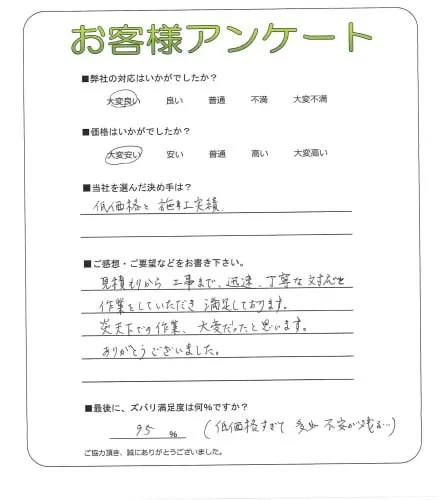 お客様アンケート
■弊社の対応はいかがでしたか？
大変良い 良い 普通 不満 大変不満
■価格はいかがでしたか？
大変安い 安い 普通 高い 大変高い
■当社を選んだ決め手は？
低価格と施工実績
■ご感想・ご要望などをお書き下さい。
見積もりから工事まで、迅速、丁寧な対応と
作業をしていただき満足しております。
炎天下での作業、大変だったと思います。
ありがとうございました。
■最後に、ズバリ満足度は何%ですか？
95 % (低価格すぎて多少不安が残る…)
ご協力頂き、誠にありがとうございました。